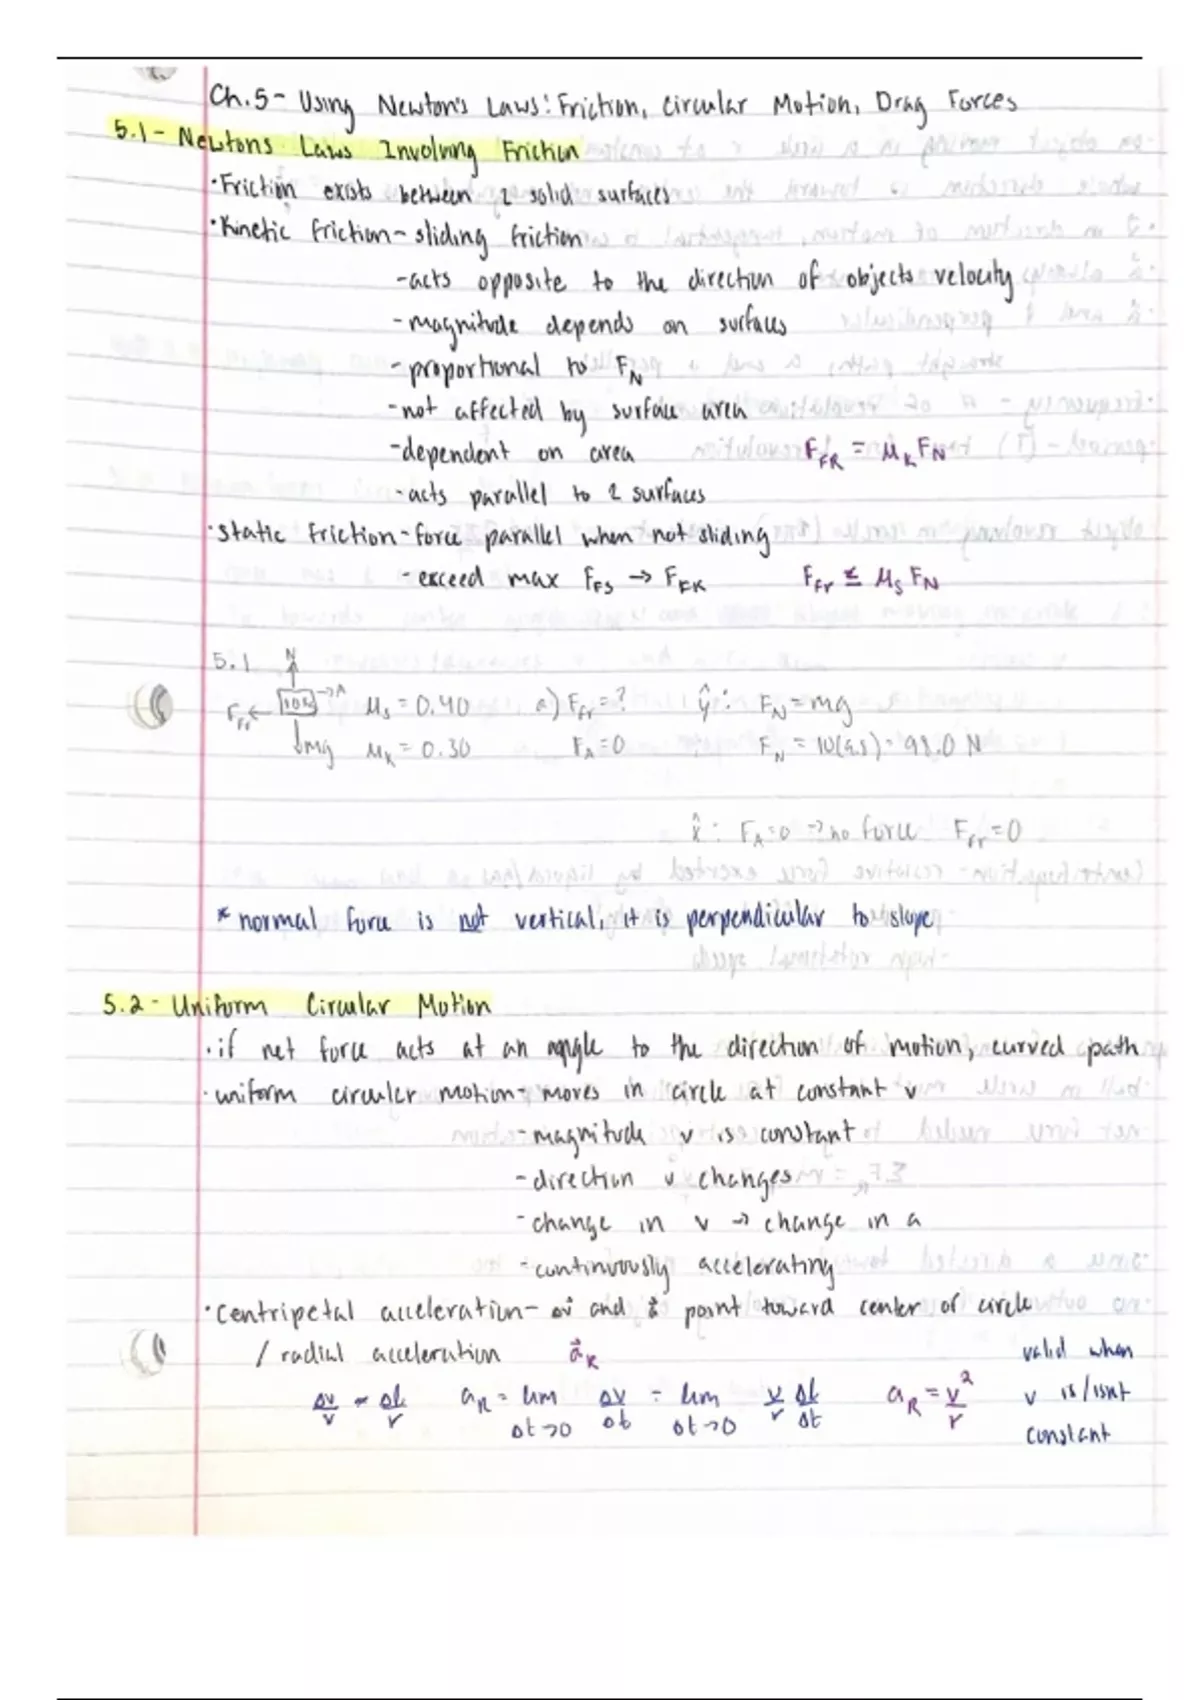 Ch.5 - Using Newton's Laws: Friction, Circular Motion, Drag Forces
5.1 - Newtons Laws Involving Friction
· Friction exists between 2 solid surfaces
· Kinetic friction - sliding friction
- acts opposite to the direction of objects velocity
- magnitude depends on surfaces
- proportional to F_N
- not affected by surface area
- dependent on area F_FR = μ_K F_N
- acts parallel to 2 surfaces
· static friction - force parallel when not sliding
- exceed max F_FS → F_FK F_Fr ≤ μ_s F_N
5.1 N
F_Fr ← 10kg → A μ_s = 0.40 a) F_Fr = ? ŷ: F_N = mg
mg μ_K = 0.30 F_A = 0 F_N = 10(9.8) = 98.0 N
x̂: F_A = 0 → no force F_Fr = 0
* normal force is not vertical, it is perpendicular to slope
5.2 - Uniform Circular Motion
· if net force acts at an angle to the direction of motion, curved path
· uniform circular motion - moves in circle at constant v
- magnitude v is constant
- direction v changes
- change in v → change in a
- continuously accelerating
· centripetal acceleration - Δv and a point toward center of circle
/ radial acceleration a_R valid when
Δv/v = Δl/r a_R = lim Δt→0 Δv/Δt = lim Δt→0 v/r Δl/Δt a_R = v²/r v is/isnt
constant